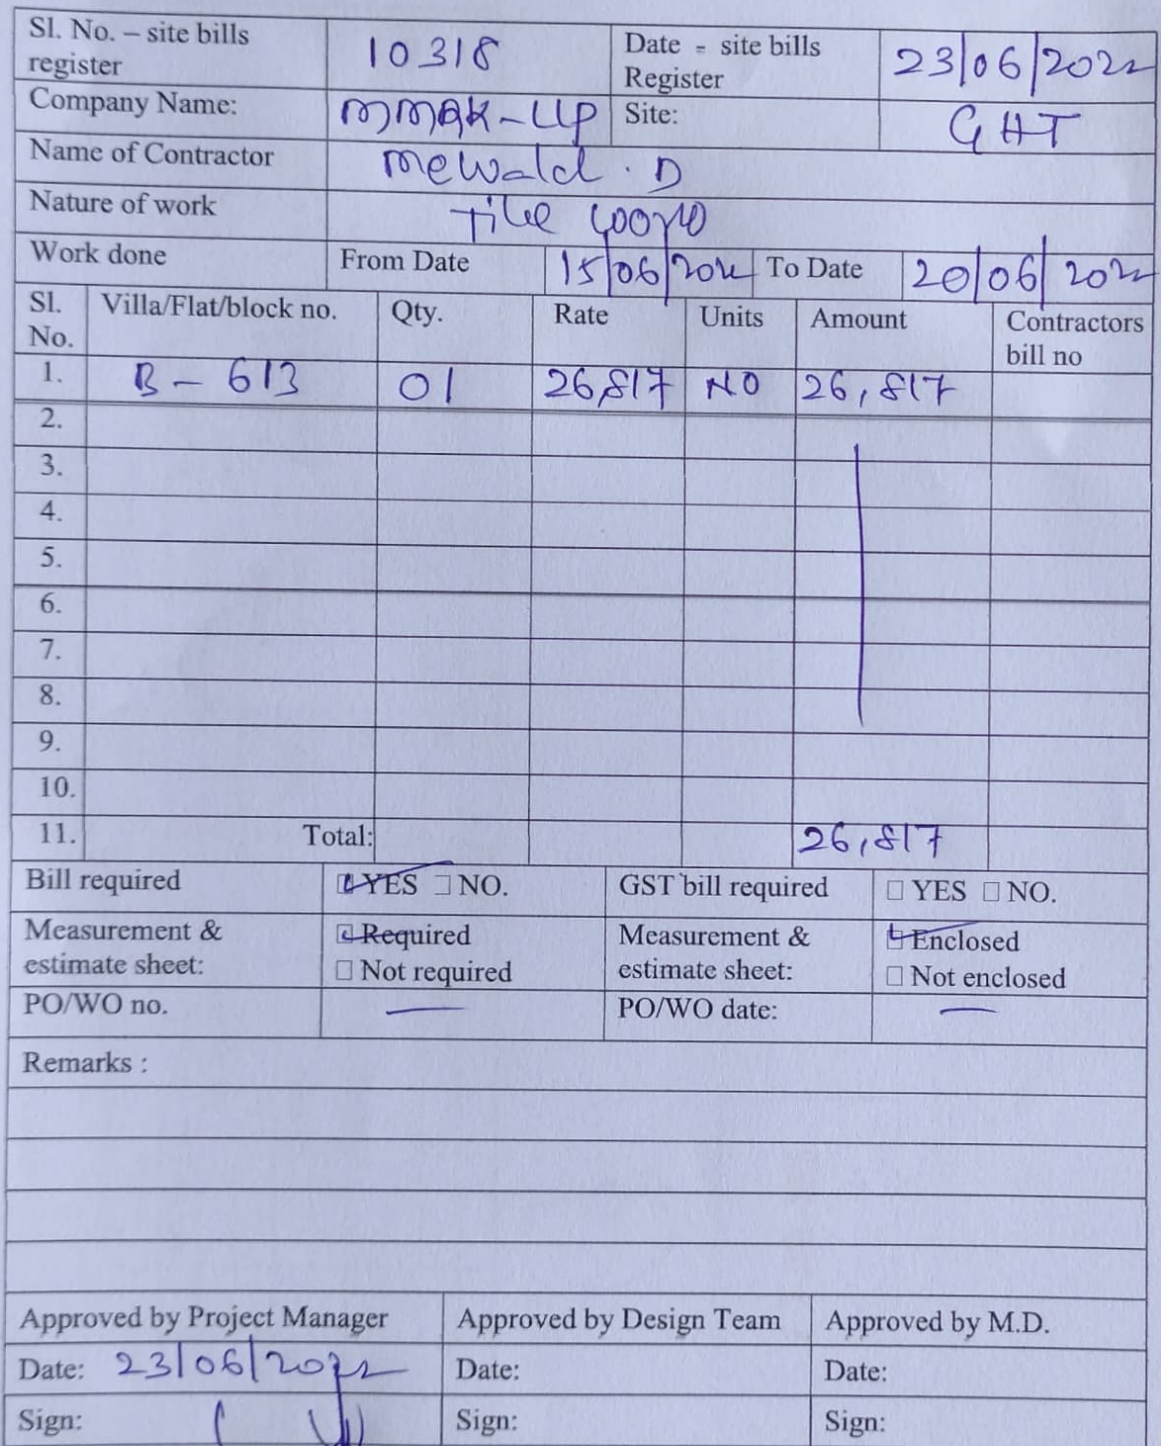 Sl. No. – site bills register 10318 Date - site bills Register 23/06/2022
Company Name: MMRK-LLP Site: GHT
Name of Contractor Mewalal . D
Nature of work Tile work
Work done From Date 15/06/2022 To Date 20/06/2022
Sl. No. Villa/Flat/block no. Qty. Rate Units Amount Contractors bill no
1. B - 613 01 26,817 NO 26,817
2.
3.
4.
5.
6.
7.
8.
9.
10.
11. Total: 26,817
Bill required ☑ YES ☐ NO. GST bill required ☐ YES ☐ NO.
Measurement & estimate sheet: ☑ Required ☐ Not required Measurement & estimate sheet: ☑ Enclosed ☐ Not enclosed
PO/WO no. — PO/WO date: —
Remarks :
Approved by Project Manager Approved by Design Team Approved by M.D.
Date: 23/06/2022 Date: Date:
Sign: Sign: Sign: